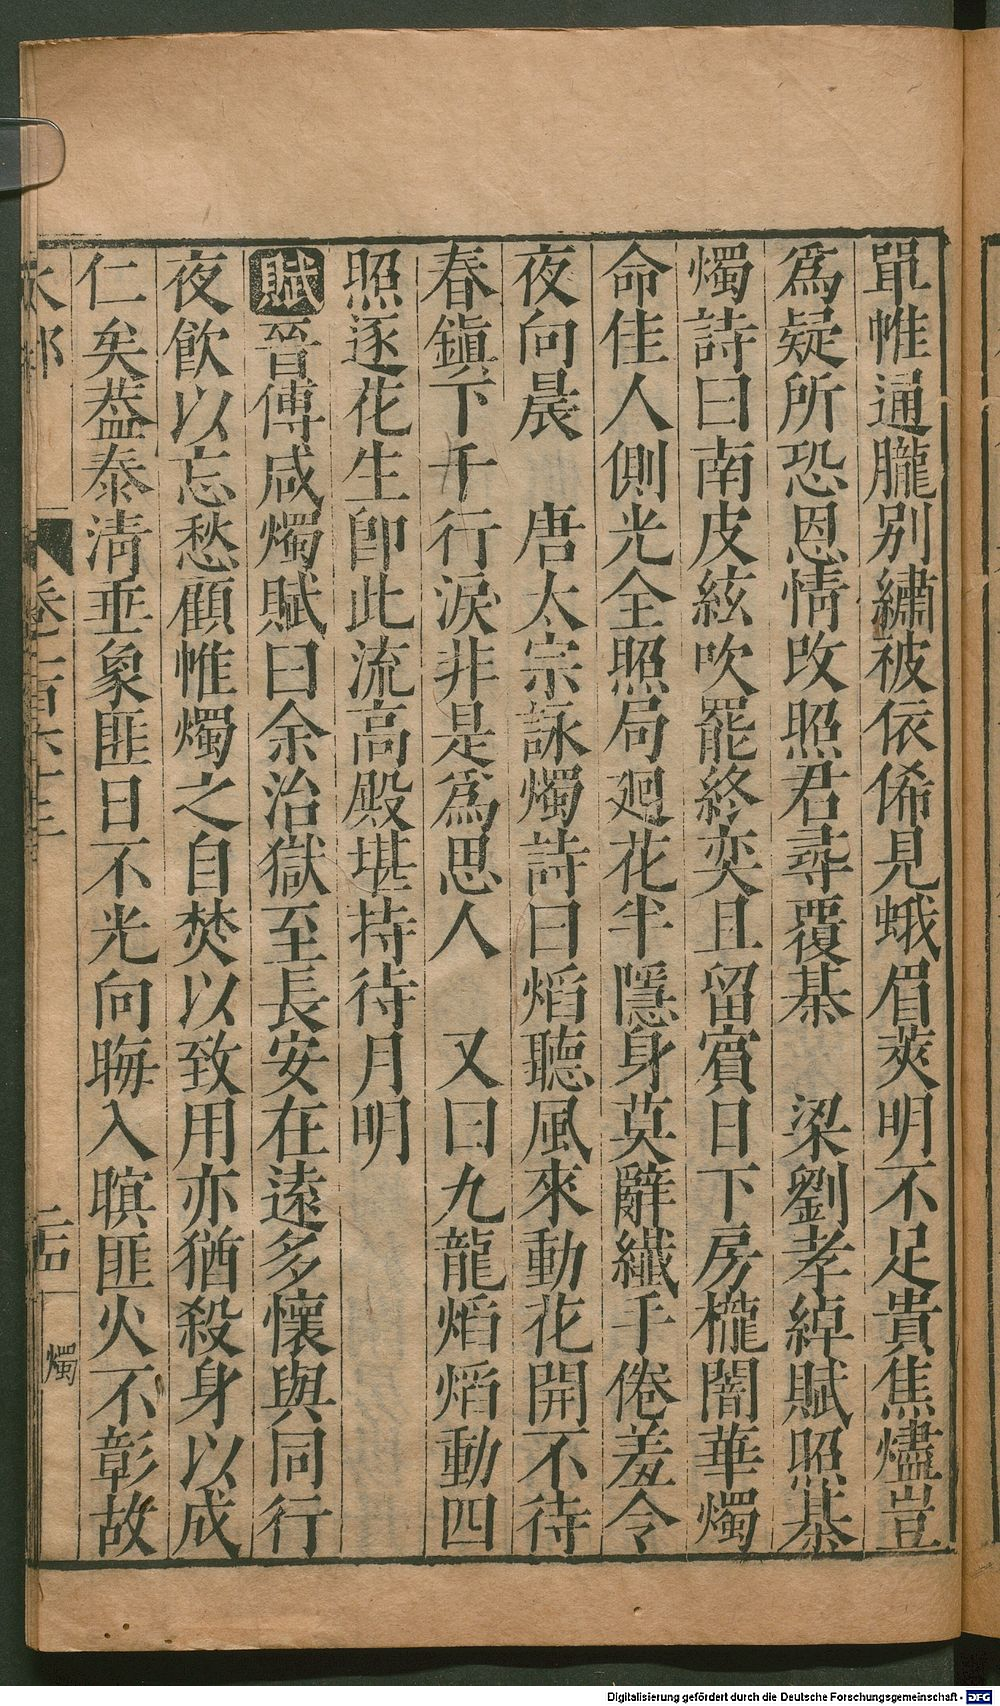 單帷通朧别繡被依俙見蛾眉莢明不足貴焦燼豈
爲疑所恐恩情改照君尋覆棊　梁劉孝綽賦照棊
燭詩曰南皮絃吹罷終奕且留賓日下房櫳闇華燭
命佳人側光全照局廻花半隱身莫辭纖手倦羞令
夜向晨　唐太宗詠燭詩曰熖聽風來動花開不待
春鎭下千行淚非是爲思人　又曰九龍熖熖動四
照逐花生卽此流高殿堪持待月明
賦晉傅咸燭賦曰余治獄至長安在遠多懷與同行
夜飮以忘愁顧惟燭之自焚以致用亦猶殺身以成
仁矣葢泰清垂象匪日不光向晦入暝匪火不彰故
火部　卷一百六十三　二四　燭
Digitalisierung gefördert durch die Deutsche Forschungsgemeinschaft - DFG